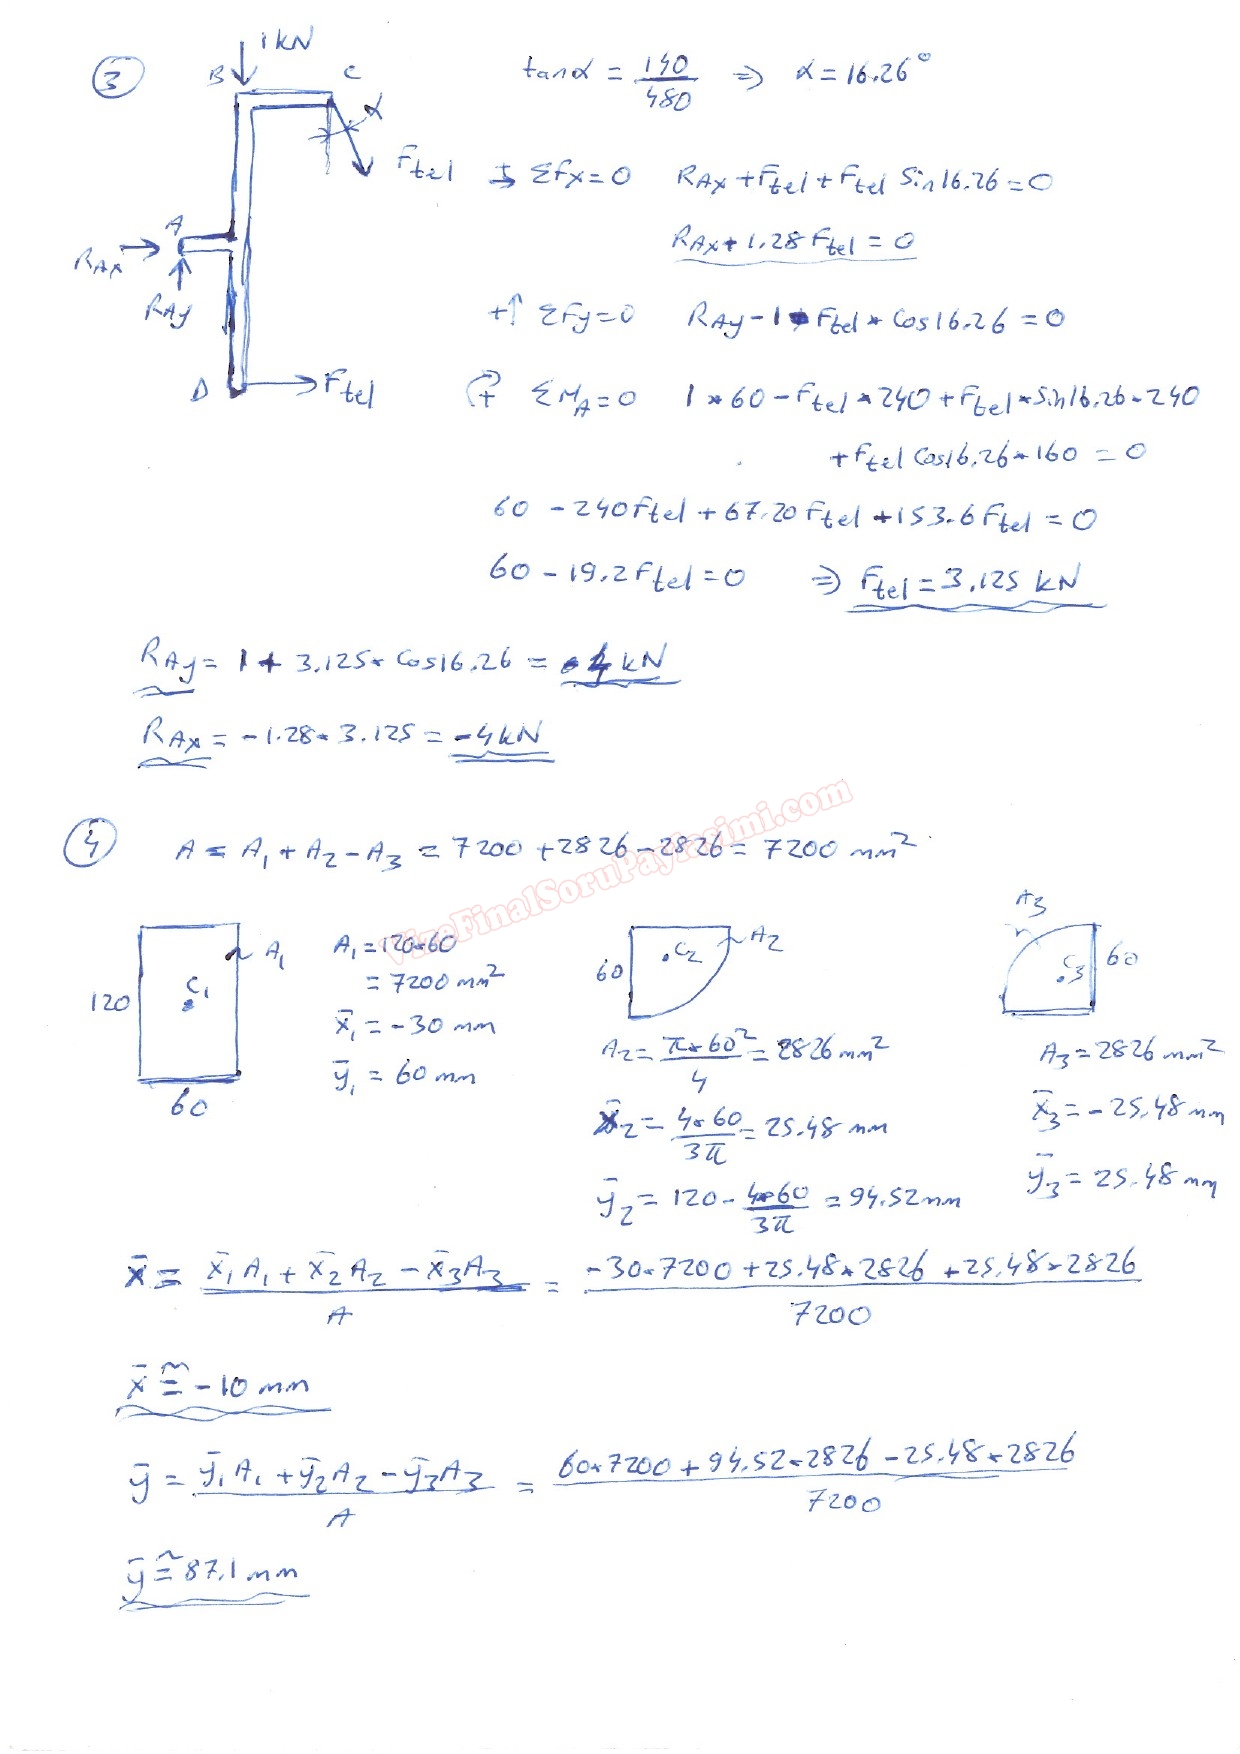 3
1 kN
B
C
α
tanα = 140/480 ⇒ α = 16.26°
Ftel
ΣFx=0 RAx + Ftel + Ftel Sin16.26 = 0
RAx + 1.28 Ftel = 0
A
RAx
RAy
+↑ ΣFy=0 RAy - 1 - Ftel * Cos16.26 = 0
D
Ftel
+ ΣMA=0 1*60 - Ftel*240 + Ftel*Sin16.26*240
+ Ftel Cos16.26*160 = 0
60 - 240Ftel + 67.20 Ftel + 153.6 Ftel = 0
60 - 19.2 Ftel = 0 ⇒ Ftel = 3.125 kN
RAy = 1 + 3.125* Cos16.26 = 4 kN
RAx = -1.28*3.125 = -4kN
4
A = A1 + A2 - A3 = 7200 + 2826 - 2826 = 7200 mm²
VizeFinalSoruPaylasimi.com
120
60
C1
A1
A1 = 120*60
= 7200 mm²
x̄1 = -30 mm
ȳ1 = 60 mm
60
C2
A2
A2 = π*60²/4 = 2826 mm²
x̄2 = 4*60/3π = 25.48 mm
ȳ2 = 120 - 4*60/3π = 94.52 mm
A3
C3
60
A3 = 2826 mm²
x̄3 = -25.48 mm
ȳ3 = 25.48 mm
x̄ = (x̄1A1 + x̄2A2 - x̄3A3)/A = (-30*7200 + 25.48*2826 + 25.48*2826)/7200
x̄ ≅ -10 mm
ȳ = (ȳ1A1 + ȳ2A2 - ȳ3A3)/A = (60*7200 + 94.52*2826 - 25.48*2826)/7200
ȳ ≅ 87.1 mm